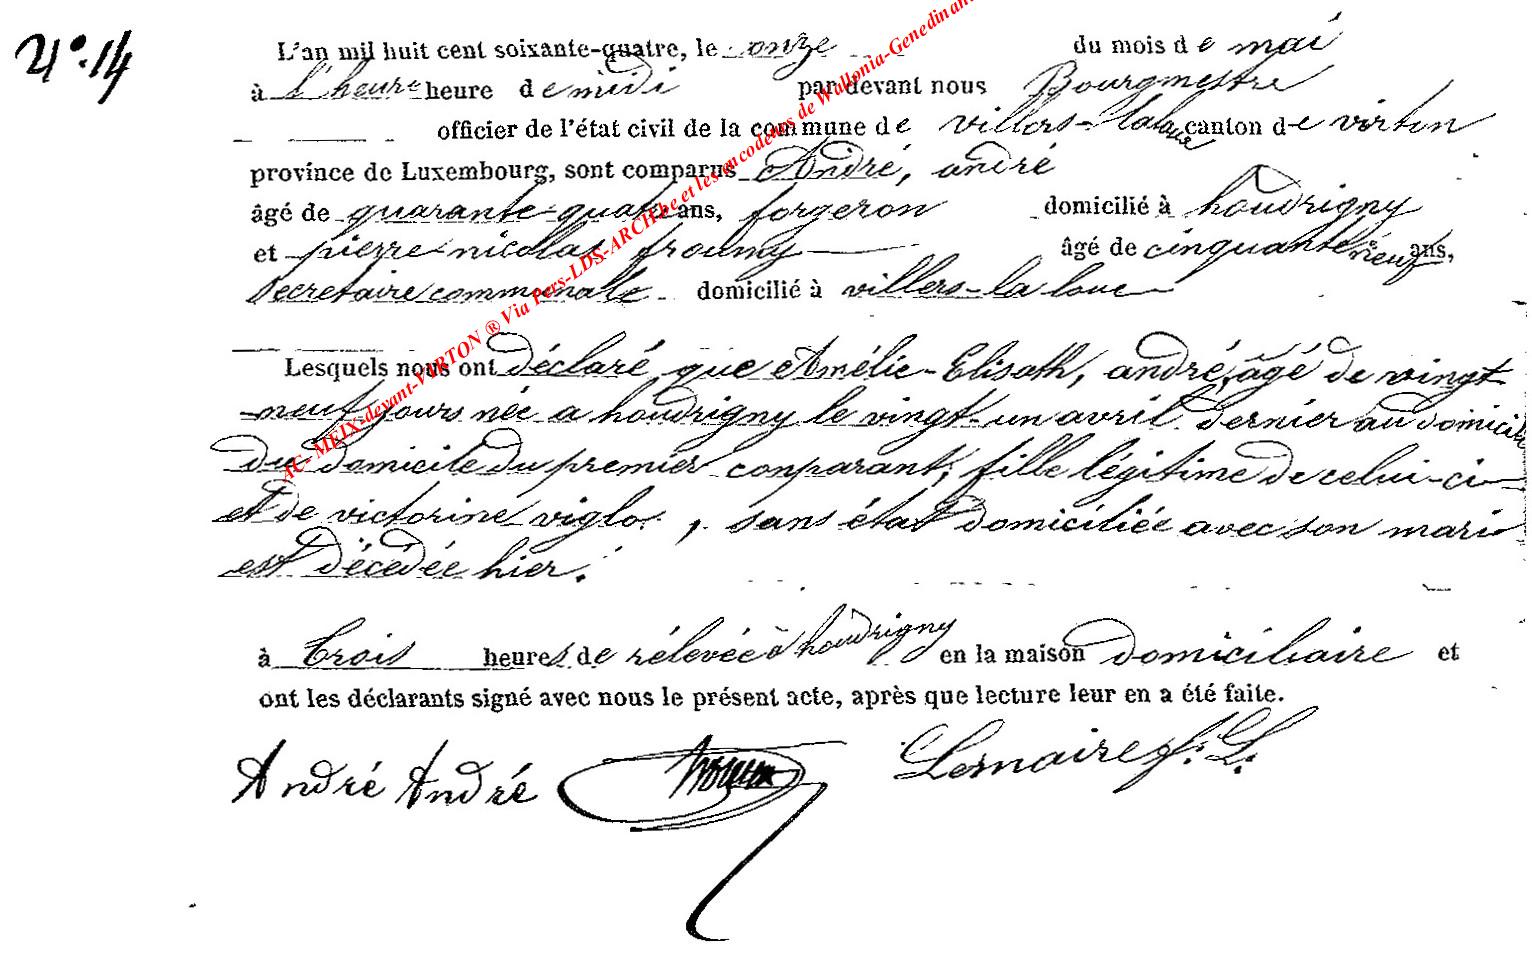 N°. 14
L'an mil huit cent soixante-quatre, le onze du mois de mai
à l'heure heure de midi par devant nous Bourgmestre
officier de l'état civil de la commune de villers-la loue canton de virton
province de Luxembourg, sont comparus André, andré
âgé de quarante-quatre ans, forgeron domicilié à houdrigny
et pierre-nicolas froumy âgé de cinquante neuf ans,
Secretaire communale domicilié à villers-la loue
Lesquels nous ont déclaré que Amélie-Elisath, andré, âgé de vingt
neuf jours née a houdrigny le vingt-un avril dernier au domicile
du domicile du premier conparant, fille légitime de celui-ci
et de victorine viglo, sans état domiciliée avec son mari
est décédée hier.
à trois heures de rélevée à houdrigny en la maison domiciliaire et
ont les déclarants signé avec nous le présent acte, après que lecture leur en a été faite.
André André Lemaire J. L.
AC- MEIX-devant-VIRTON ® Via Pers-LDS-ARCH.be et les encodeurs de Wallonia-Genedinant